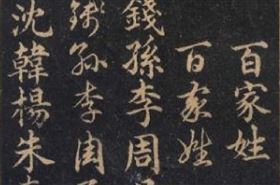 百家姓
百家姓
錢孫李周
錢孫李周
沈韓楊朱